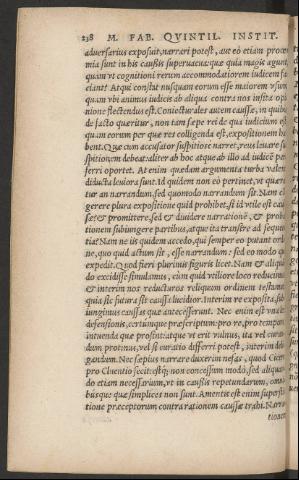 238 M. FAB. QVINTIL. INSTIT.
aduersarius exposuit, narrari potest, aut eò etiam prooe
mia sunt in his causis superuacua: quæ quia magis agunt,
quàm vt cognitioni rerum accommodatiorem iudicem fa
ciant? Atqui constat nusquam eorum esse maiorem vsum,
quàm vbi animus iudicis ab aliqua contra nos insita opi
nione flectendus est. Coniecturales autem causæ, in quibus
de facto quæritur, non tam sæpe rei de qua iudicium est
quàm eorum per quæ res colligenda est, expositionem ha
bent. Quæ cum accusator suspitiosè narret, reus leuare su
spitionem debeat: aliter ab hoc atque ab illo ad iudicē per
ferri oportet. At enim quædam argumenta turba valent
diducta leuiora sunt. Id quidem non eò pertinet, vt quæra
tur an narrandum, sed quomodo narrandum sit. Nam
gerere plura expositione quid prohibet, si id vtile est cau
sæ? & promittere, sed & diuidere narrationē, & proba
tionem subiungere partibus, atque ita transire ad sequen
tia? Nam ne iis quidem accedo, qui semper eo putant ordi
ne, quo quid actum sit, esse narrandum: sed eo modo quo
expedit. Quod fieri plurimis figuris licet. Nam & aliquan
do excidisse simulamus, cùm quid vtiliore loco reducimus
& interim nos redituros reliquum ordinem testamur
quia sic futura sit causa lucidior. Interim re exposita, sub
iungimus causas quæ antecesserunt. Nec enim est vna lex
defensionis, certumque præscriptum: pro re, pro tempore
intuenda quæ prosint: atque vt erit vulnus, ita vel curan
dum protinus, vel si curatio differri potest, interim deli
gandum. Nec sæpius narrare duxerim nefas, quod Cicero
pro Cluentio fecit: estq; non concessum modò, sed aliquan
do etiam necessarium, vt in causis repetundarum, omni
busque quæ simplices non sunt. Amentis est enim supersti
tione præceptorum contra rationem causæ trahi. Narra
tionem